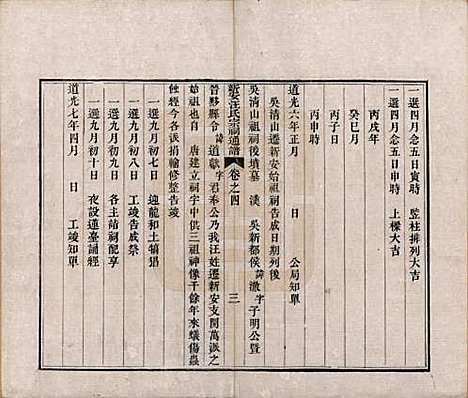 一選四月念五日寅時　豎柱排列大吉
一選四月念五日申時　上樑大吉
丙戌年
癸巳月
丙子日
丙申時
道光六年正月　日　公局知單
吳清山遷新安始祖祠告成日期列後
吳清山祖祠後墳墓　漢　吳新都侯諱澈字子明公暨
新安汪氏宗祠通譜　卷之四　三
晉黟縣令諱道獻字君奉公乃我汪姓遷新安支開萬派之
始祖也自　唐建立祠宇中供三祖神像千餘年來蟻傷蟲
蝕經今各派捐輸修整告竣
一選九月初七日　迎龍和土犒猖
一選九月初八日　工竣告祭
一選九月初九日　各主詣祠配享
一選九月初十日　夜設蓮臺誦經
道光七年四月　日　工竣知單